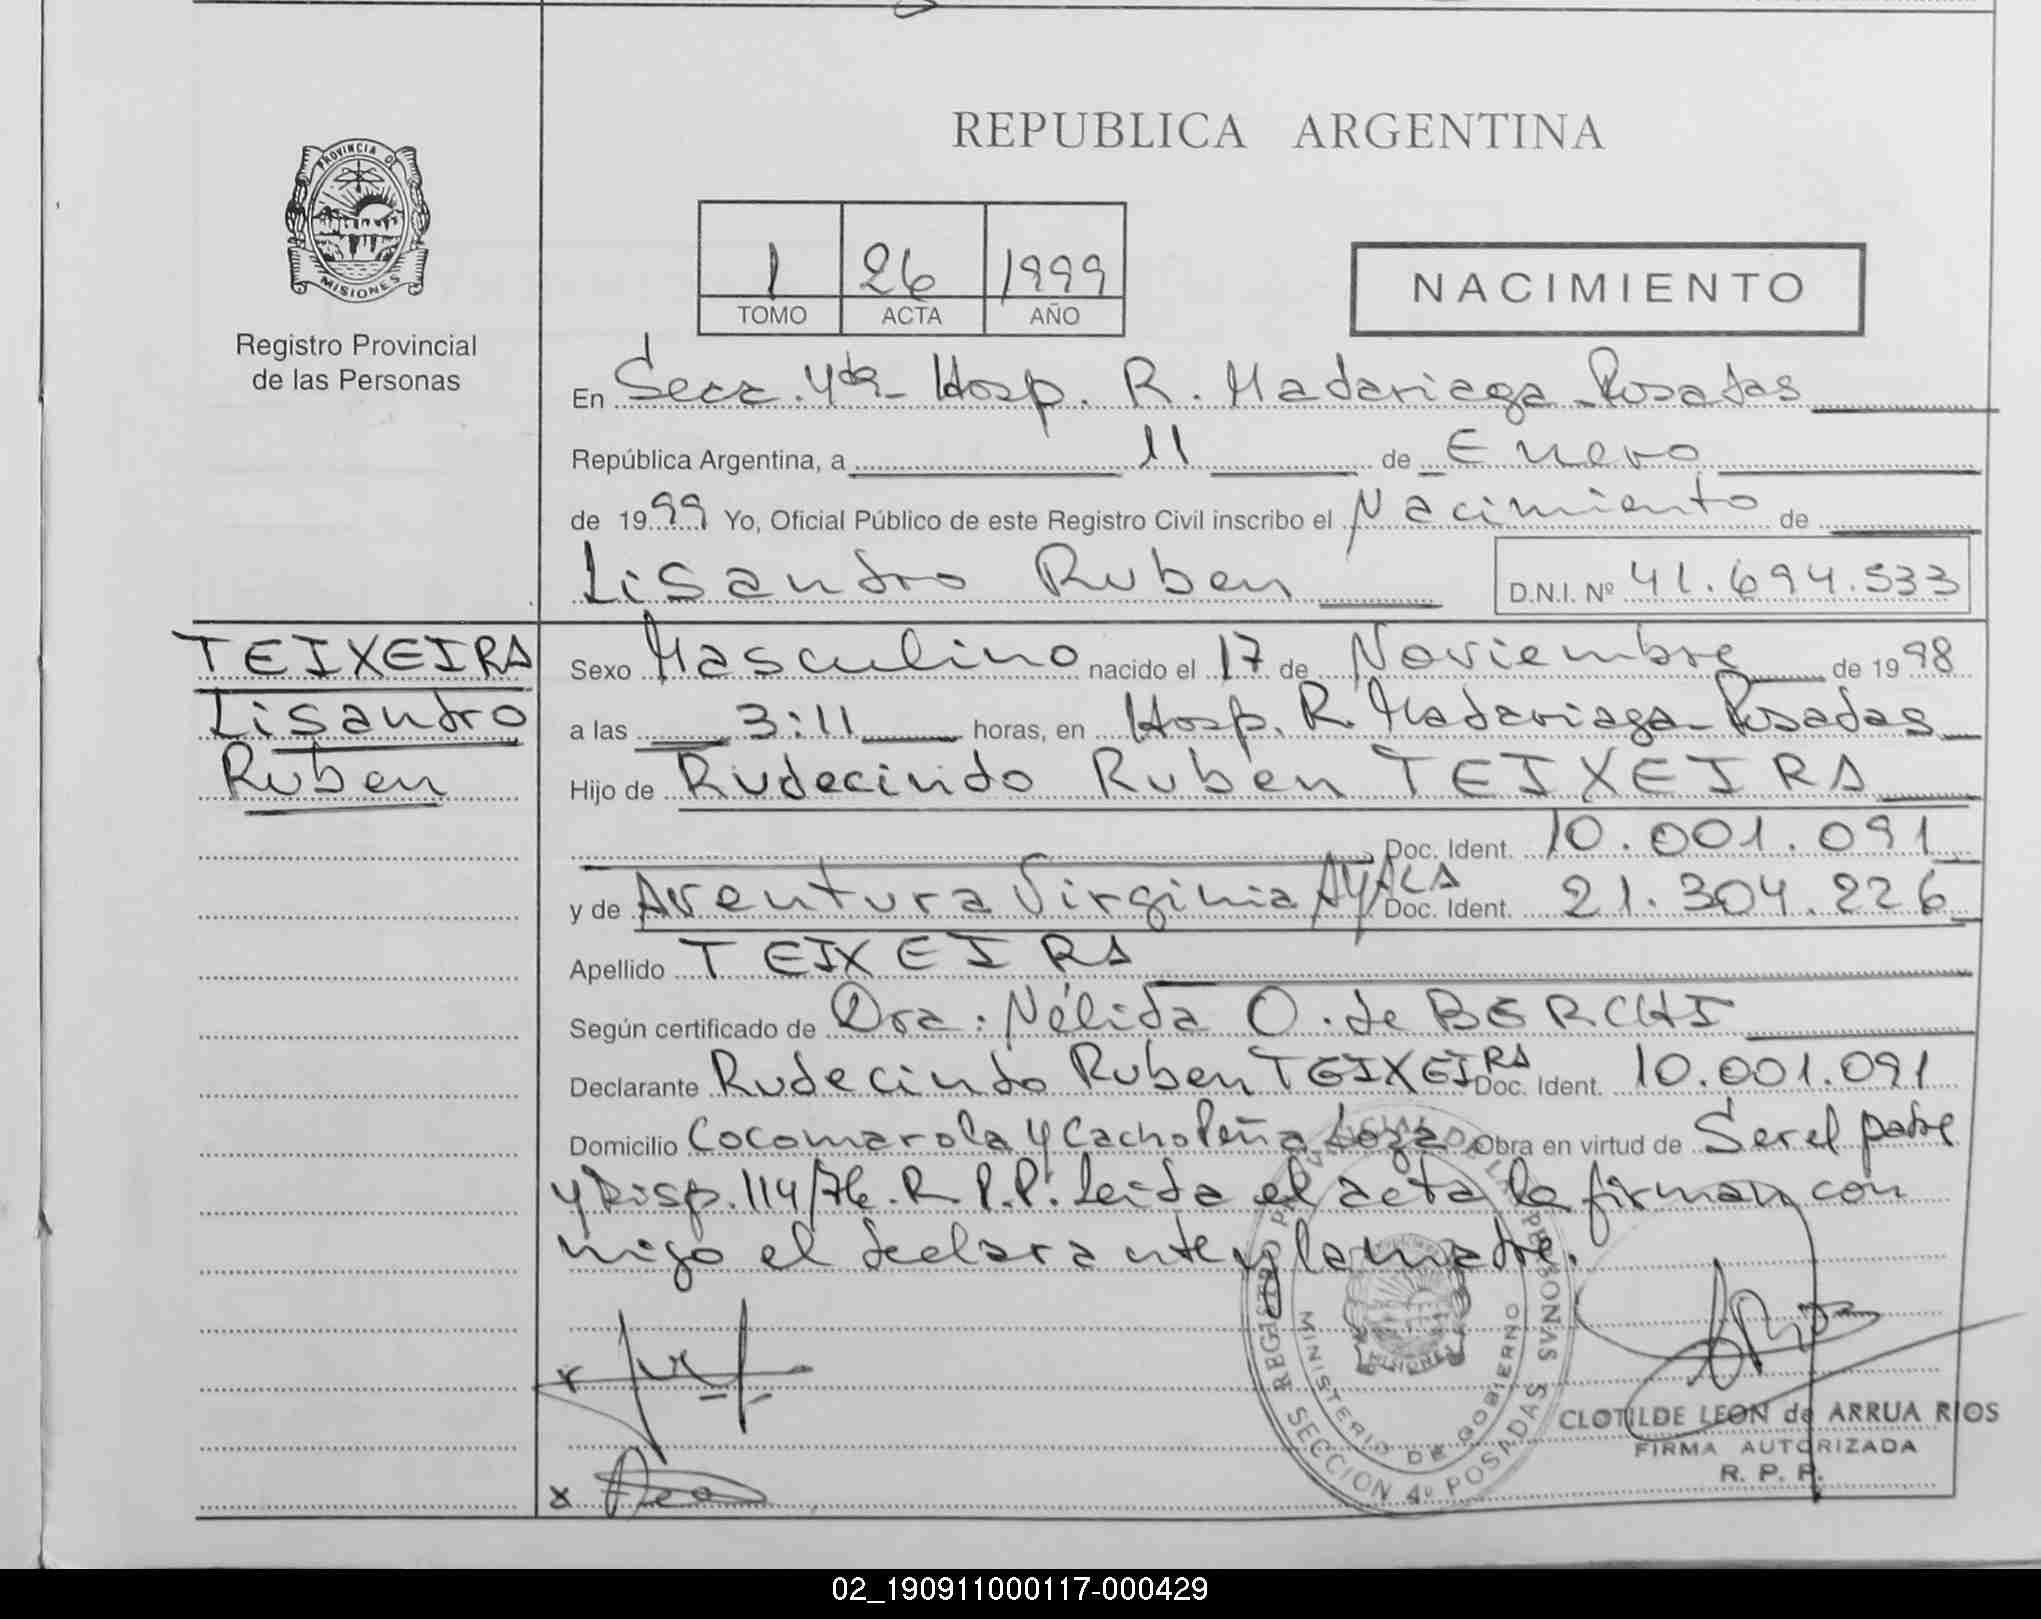 REPUBLICA ARGENTINA
PROVINCIA D
MISIONES
Registro Provincial
de las Personas
1 26 1999
TOMO ACTA AÑO
NACIMIENTO
En Secc. 4ta - Hosp. R. Madariaga - Posadas
República Argentina, a 11 de Enero
de 1999 Yo, Oficial Público de este Registro Civil inscribo el Nacimiento de
Lisandro Ruben D.N.I. Nº 41.694.533
TEIXEIRA
Lisandro
Ruben
Sexo Masculino nacido el 17 de Noviembre de 1998
a las 3:11 horas, en Hosp. R. Madariaga - Posadas
Hijo de Rudecindo Ruben TEIXEIRA
Doc. Ident. 10.001.091
y de Aventura Virginia AYALA Doc. Ident. 21.304.226
Apellido TEIXEIRA
Según certificado de Dra. Nélida O. de BERCHI
Declarante Rudecindo Ruben TEIXEIRA Doc. Ident. 10.001.091
Domicilio Cocomarola y Cacho Peña Obra en virtud de Ser el padre
y Disp. 114/76. R.P.P. Leida el acta la firman con
migo el declarante y la madre.
REGISTRO PROVINCIAL DE LAS PERSONAS
MINISTERIO DE GOBIERNO
SECCION 4º POSADAS
MISIONES
CLOTILDE LEON de ARRUA RIOS
FIRMA AUTORIZADA
R. P. P.
02_190911000117-000429